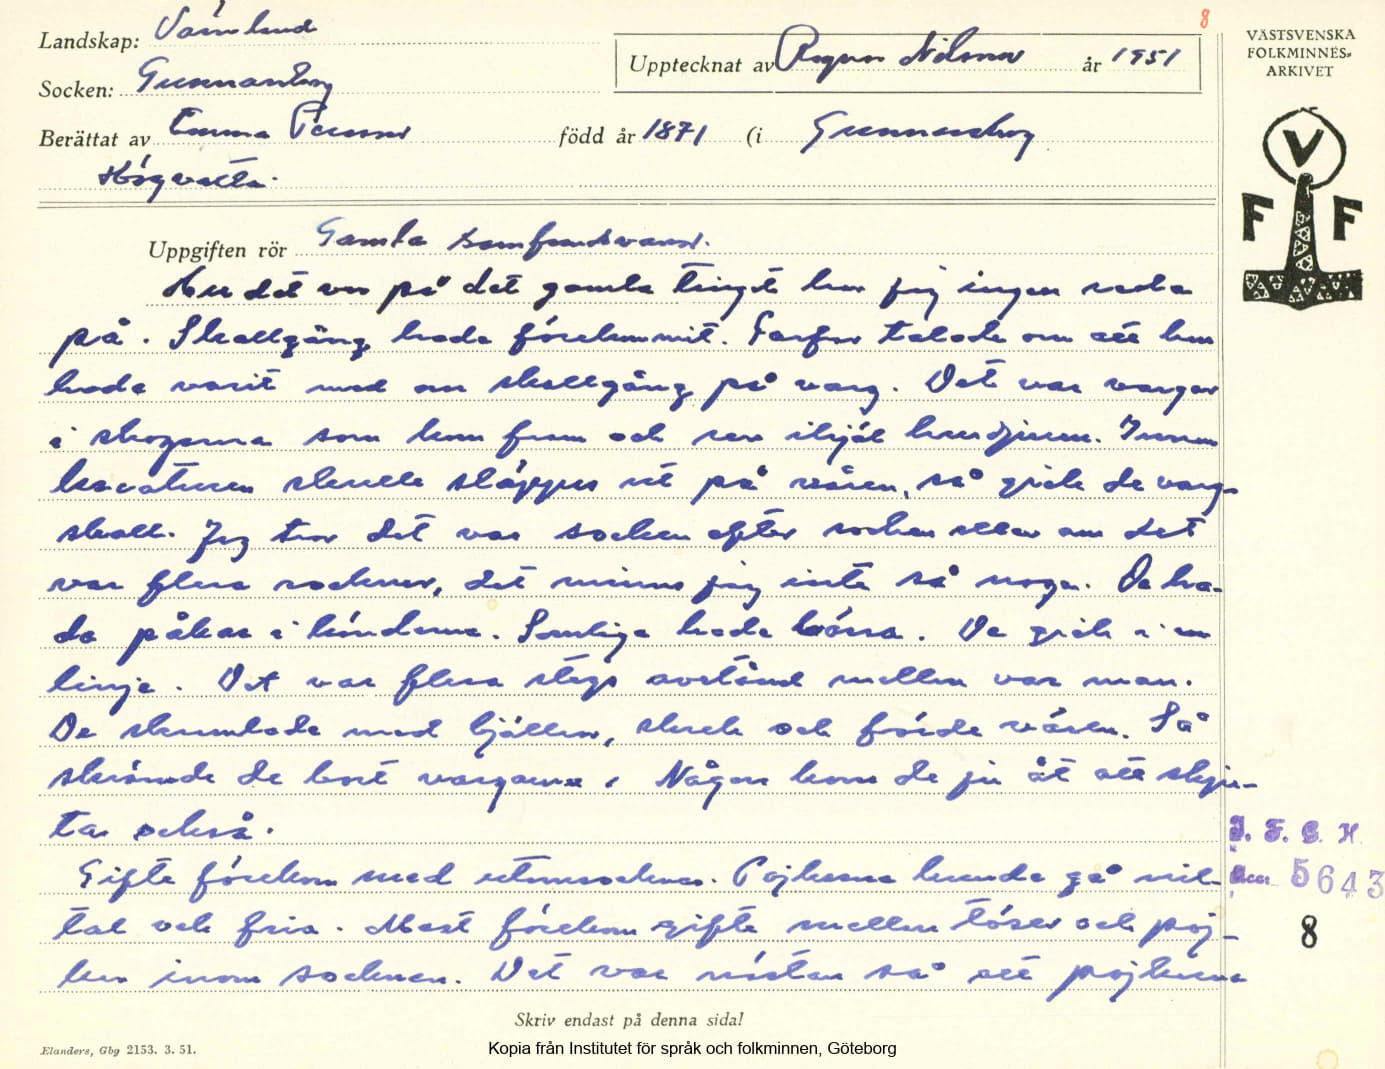 8
Landskap: Värmland
Upptecknat av Ragnar Nilsson år 1951
Socken: Gunnarskog
Berättat av Emma Persson född år 1871 (i Gunnarskog
Högvalta.
VÄSTSVENSKA
FOLKMINNES-
ARKIVET
V
F F
Uppgiften rör Gamla samfundsvanor.
Hur det var på det gamla tinget har jag ingen reda
på. Skallgång hade förekommit. Farfar talade om att han
hade varit med om skallgång på varg. Det var vargar
i skogarna som kom fram och rev ihjäl husdjuren. Innan
kreaturen skulle släppas ut på våren, så gick de varg-
skall. Jag tror det var socken efter socken eller om det
var flera socknar, det minns jag inte så noga. De ha-
de påkar i händerna. Somliga hade bössa. De gick i en
linje. Det var flera stegs avstånd mellan var man.
De skramlade med bjällror, skrek och förde väsen. Så
skrämde de bort vargarna. Någon kom de ju åt att skju-
ta också.
Gifte förekom med utomsocknes. Pojkarna kunde gå mil-
tal och fria. Mest förekom gifte mellan töser och poj-
kar inom socknen. Det var nästan så att pojkarna
I. F. G. H.
Acc. 5643
8
Skriv endast på denna sida!
Elanders, Gbg 2153. 3. 51.
Kopia från Institutet för språk och folkminnen, Göteborg